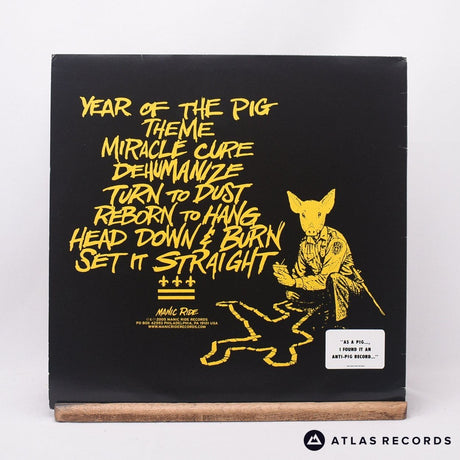 YEAR OF THE PIG
THEME
MIRACLE CURE
DEHUMANIZE
TURN TO DUST
REBORN TO HANG
HEAD DOWN & BURN
SET IT STRAIGHT
MANIC RIDE
© & ℗ 2005 MANIC RIDE RECORDS
PO BOX 42592 PHILADELPHIA, PA 19101 USA
WWW.MANICRIDERECORDS.COM
"AS A PIG....
I FOUND IT AN
ANTI-PIG RECORD..."
ATLAS RECORDS